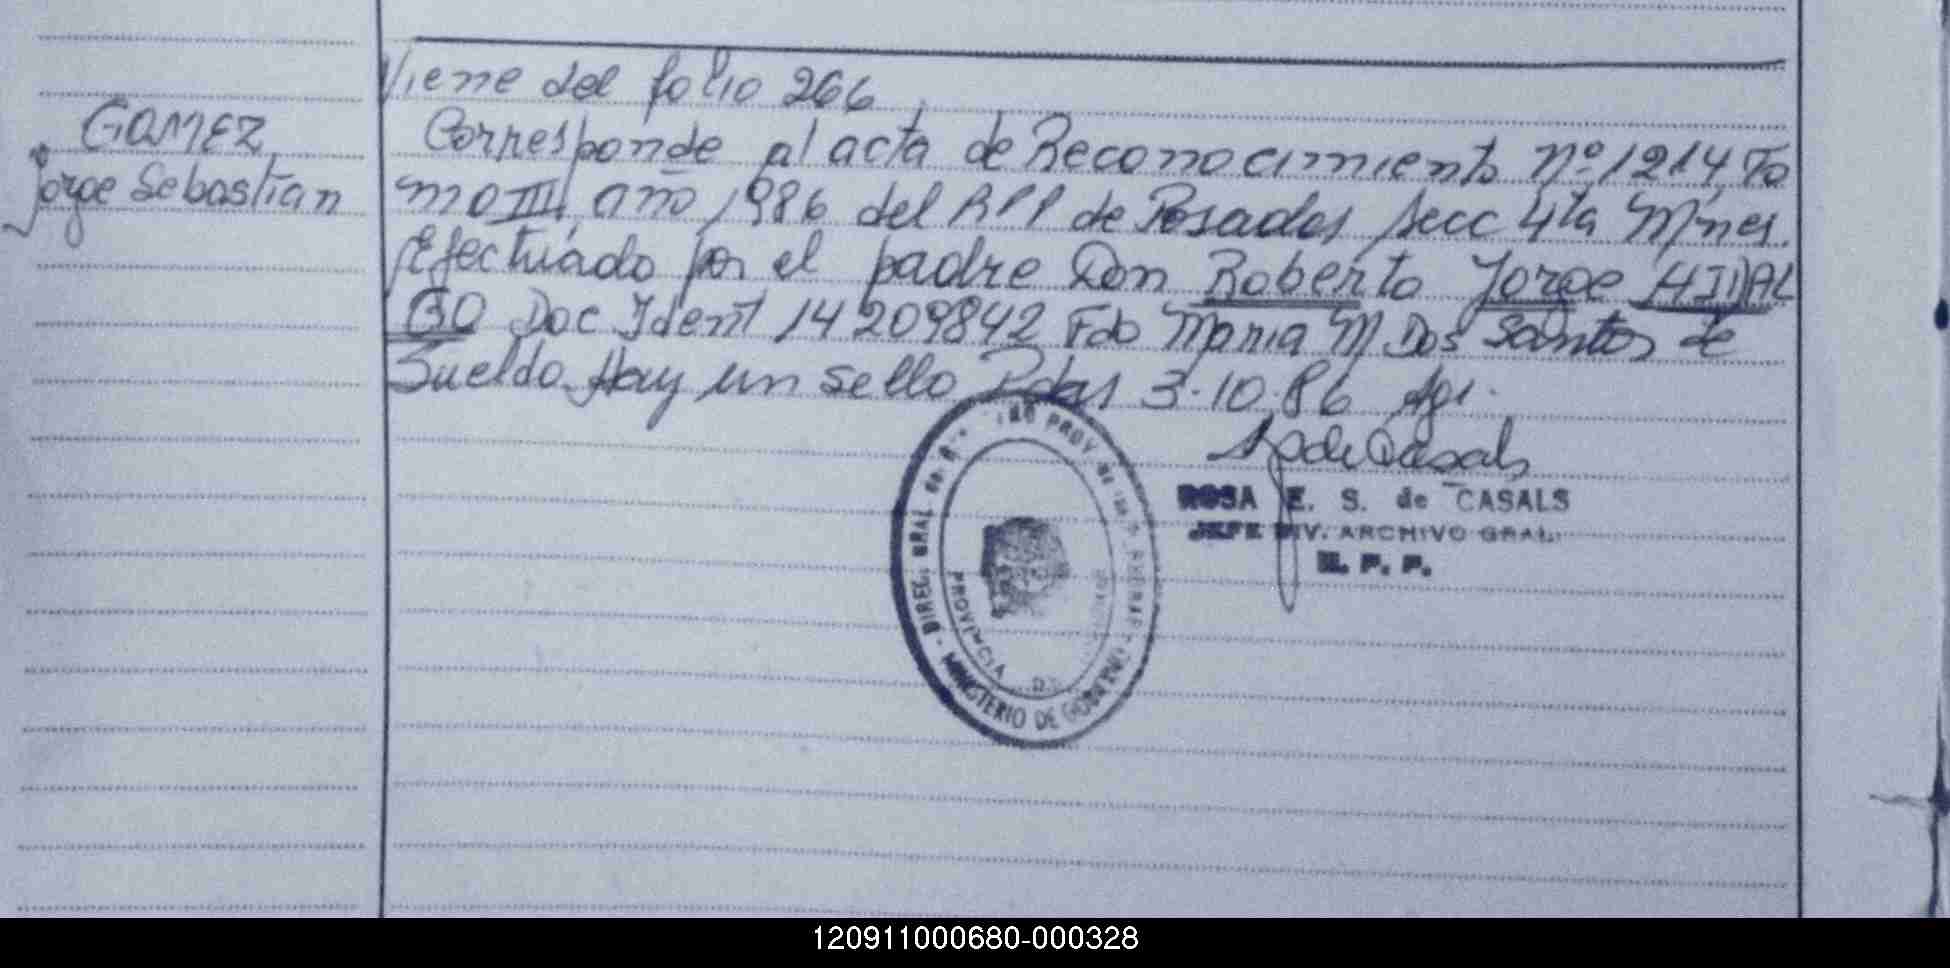 Viene del folio 266
GOMEZ
Jorge Sebastian
Corresponde al acta de Reconocimiento Nº 1214 To
mo III año 1986 del RPP de Posadas Secc 4ta Mnes.
Efectuado por el padre Don Roberto Jorge HIDAL
GO Doc Ident 14209842 Fdo Maria M Dos Santos de
Sueldo. Hay un sello Pdas 3-10-86
ROSA E. S. de CASALS
JEFE DIV. ARCHIVO GRAL.
R. P. P.
DIREC. GRAL
PROV
PROVINCIA
MINISTERIO DE GOBIERNO
120911000680-000328